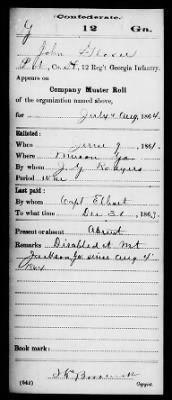 Confederate.
G 12 Ga.
John
Pvt., Co. H, 12 Reg't Georgia Infantry.
Appears on
Company Muster Roll
of the organization named above,
for July & Aug, 1864.
Enlisted:
When June 9, 1861.
Where Macon Ga
By whom J. G. Rodgers
Period War
Last paid:
By whom Capt Elhart
To what time Dec 31, 1863.
Present or absent Absent
Remarks Disabled at Mt
Jackson since Aug 4"
1864
Book mark:
(642)
Copyist.